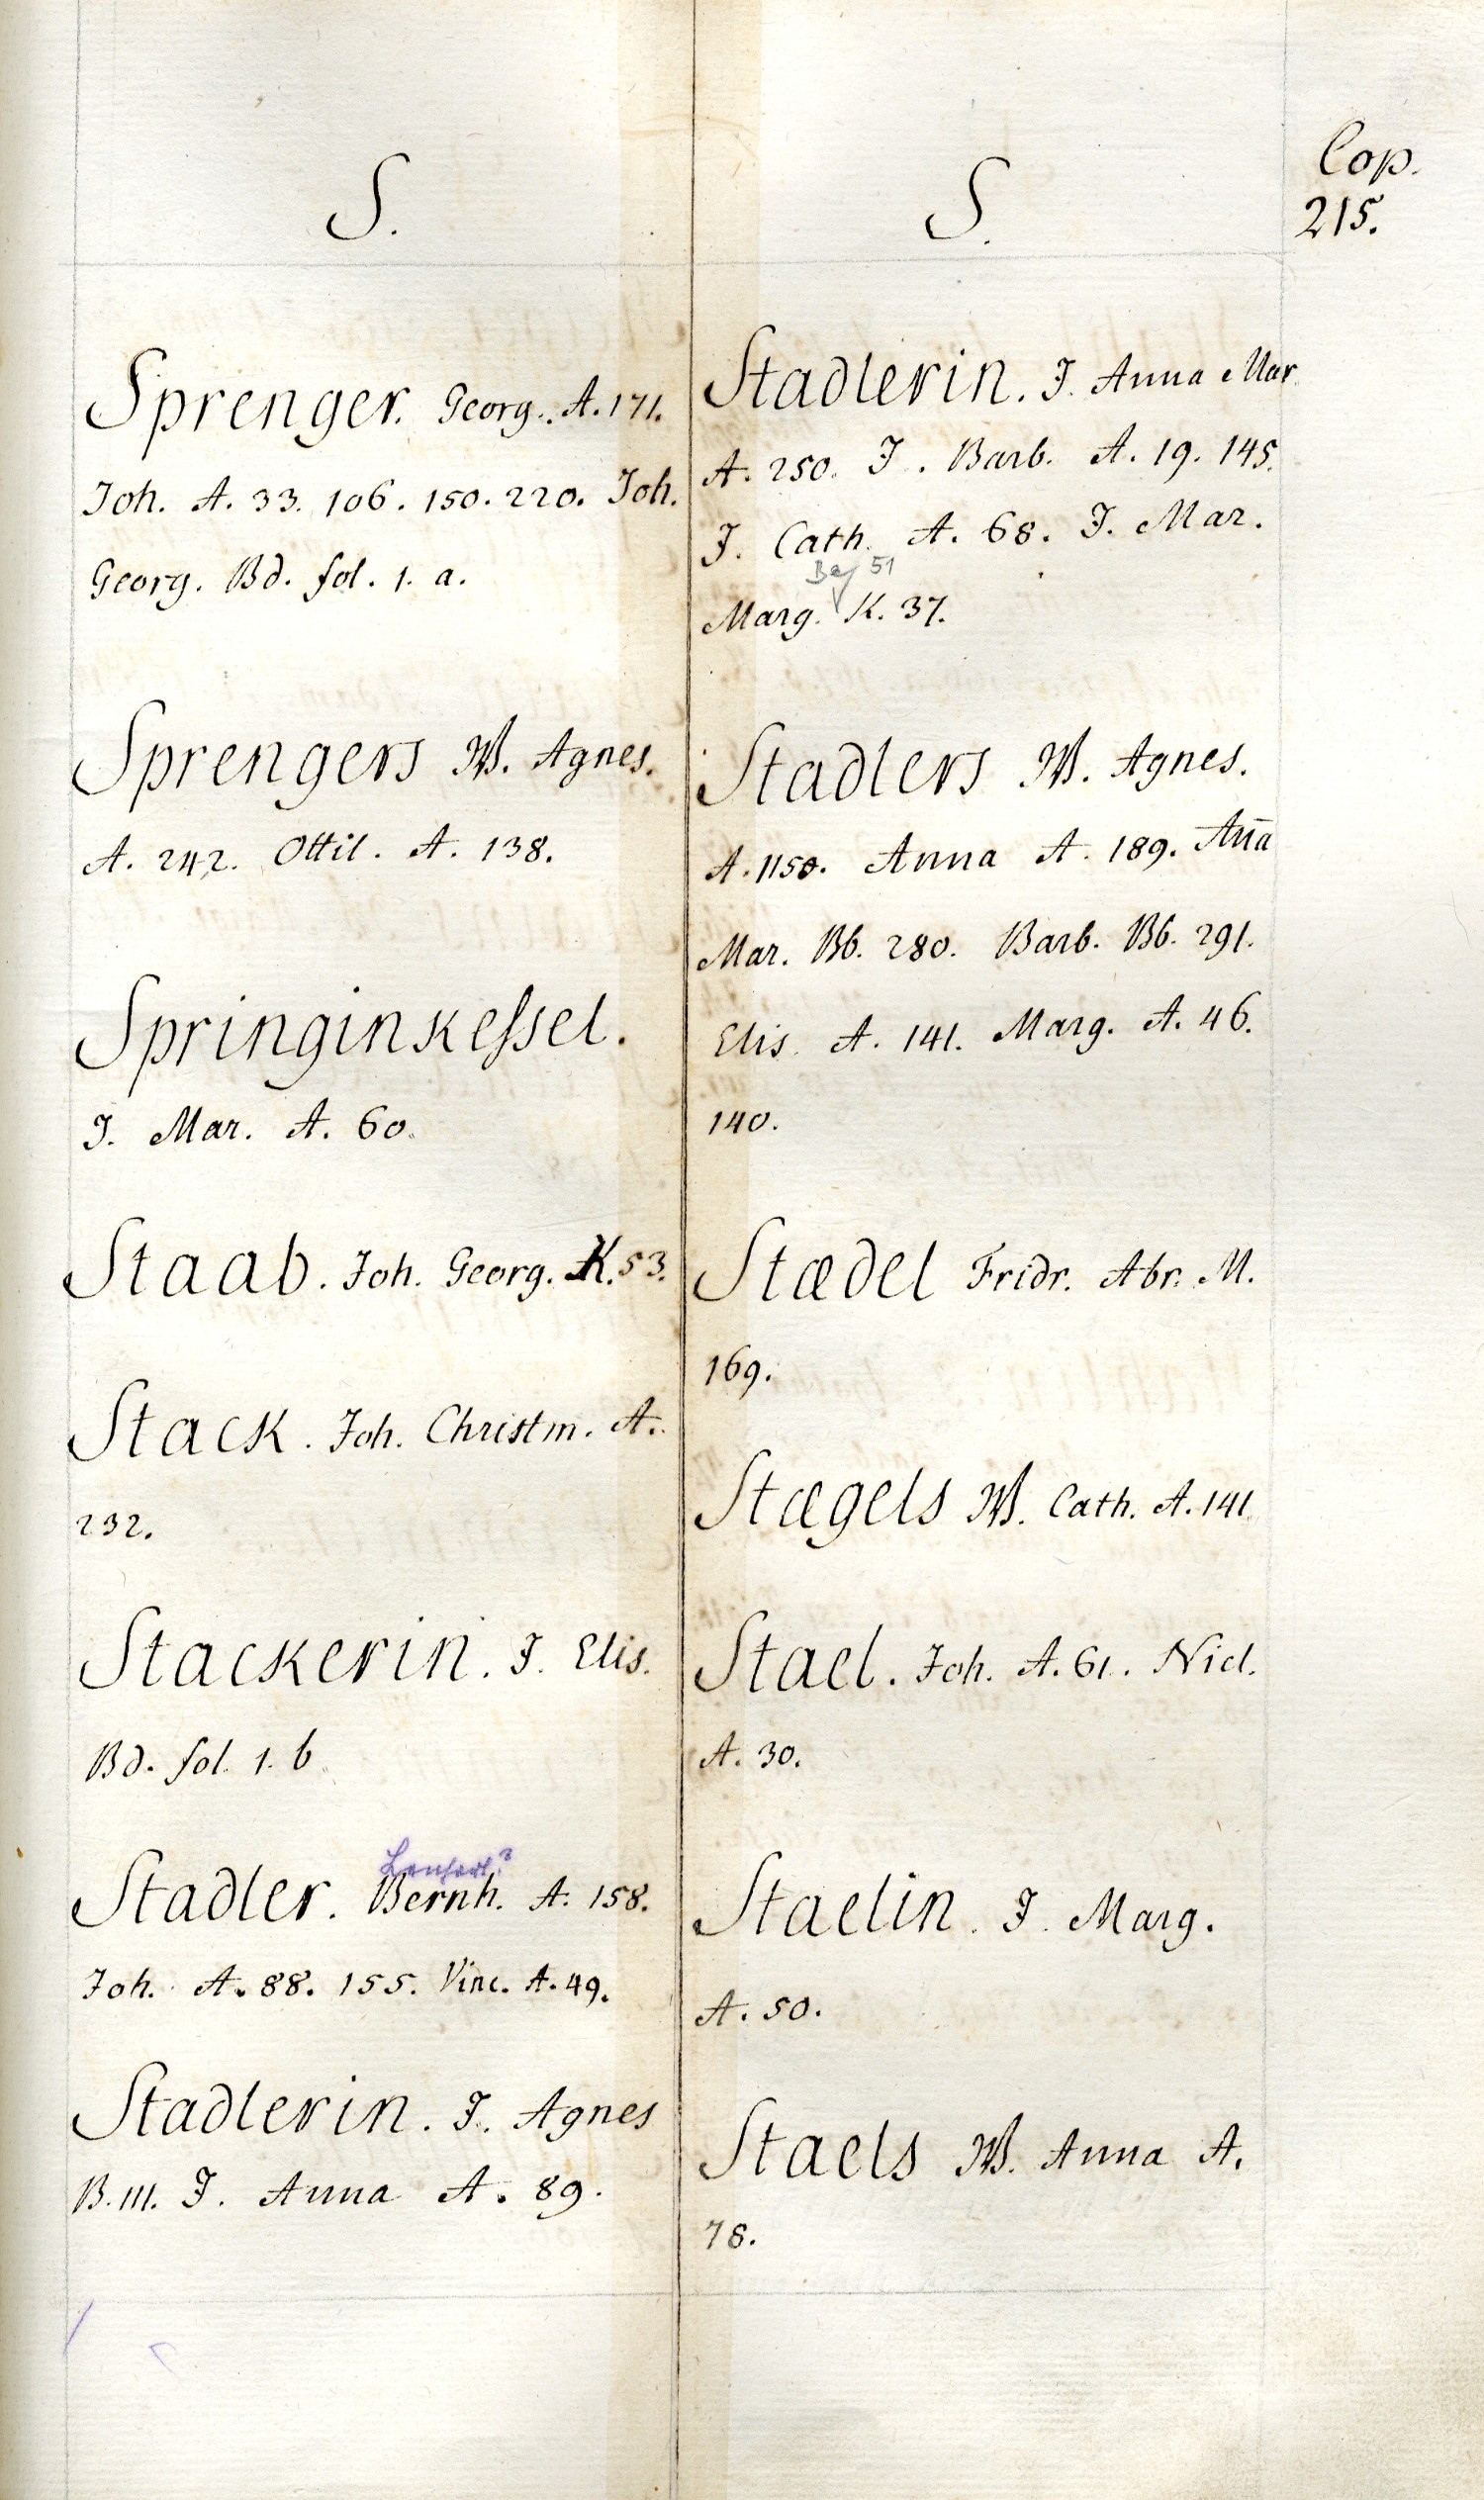 Cop.
215.
S.
Sprenger. Georg. A. 171.
Joh. A. 33. 106. 150. 220. Joh.
Georg. Bd. fol. 1. a.
Sprengers W. Agnes.
A. 242. Ottil. A. 138.
Springinkessel.
J. Mar. A. 60.
Staab. Joh. Georg. K. 53.
Stack. Joh. Christm. A.
232.
Stackerin. J. Elis.
Bd. fol. 1. b
Lenhart?
Stadler. Bernh. A. 158.
Joh. A. 88. 155. Vinc. A. 49.
Stadlerin. J. Agnes
B. 111. J. Anna A. 89.
S.
Stadlerin. J. Anna Mar
A. 250. J. Barb. A. 19. 145.
J. Cath. A. 68. J. Mar.
51
Marg. K. 37.
Stadlers W. Agnes.
A. 1150. Anna A. 189. Aña
Mar. Bb. 280. Barb. Bb. 291.
Elis. A. 141. Marg. A. 46.
140.
Stædel Fridr. Abr. M.
169.
Stægels W. Cath. A. 141
Stael. Joh. A. 61. Nicl.
A. 30.
Staelin. J. Marg.
A. 50.
Staels W. Anna A.
78.